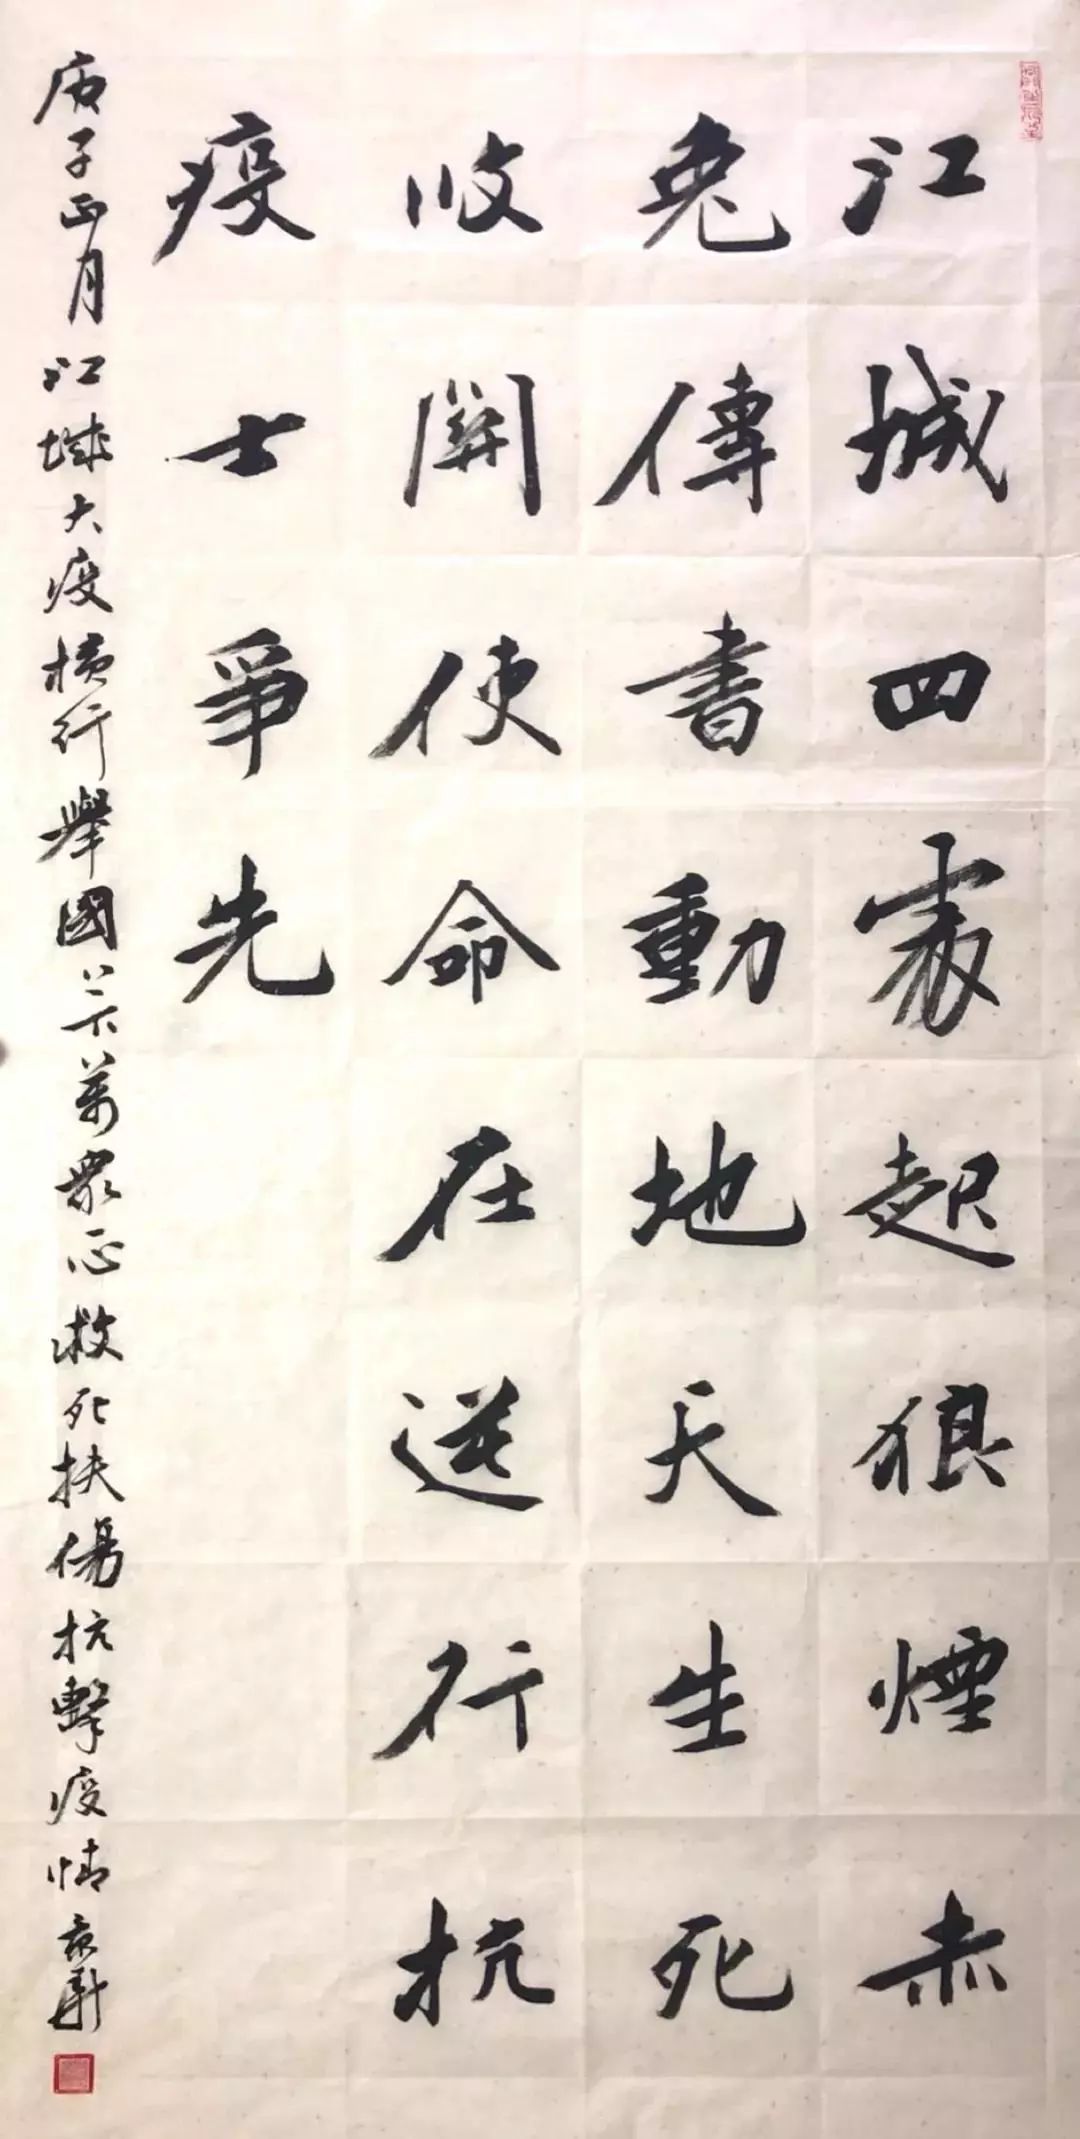 江城四處起狼煙赤
兔傳書動地天生死
攸關使命在逆行抗
疫士爭先
庚子正月江城大疫橫行舉國上下萬衆一心救死扶傷抗擊疫情